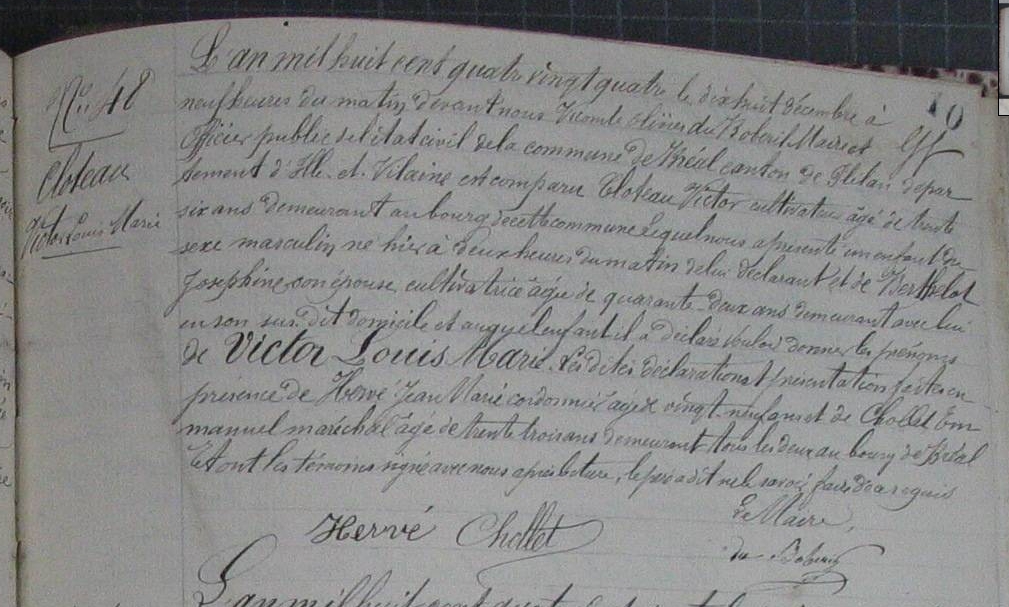 10
No. 48
Cloteau
Victor Louis Marie
L'an mil huit cent quatre vingt quatre le dix huit décembre à
neuf heures du matin devant nous Vicomte du Boberil Maire et
Officier public de l'état civil de la commune de Bréal canton de Plélan dépar
tement d'Ille-et-Vilaine est comparu Cloteau Victor cultivateur âgé de trente
six ans demeurant au bourg de cette commune lequel nous a présenté un enfant du
sexe masculin né hier à deux heures du matin de lui déclarant et de Berthelot
Joséphine son épouse cultivatrice âgée de quarante-deux ans demeurant avec lui
en son sus-dit domicile et auquel enfant il a déclaré vouloir donner les prénoms
de Victor Louis Marie. Les dites déclaration et présentation faites en
présence de Hervé Jean Marie cordonnier âgé de vingt-neuf ans et de Chollet Em
manuel maréchal âgé de trente trois ans demeurant tous les deux au bourg de Bréal
Et ont les témoins signé avec nous après lecture, le père a dit ne le savoir faire de ce requis
Le Maire,
Hervé Chollet
du Boberil
L'an mil huit cent quat